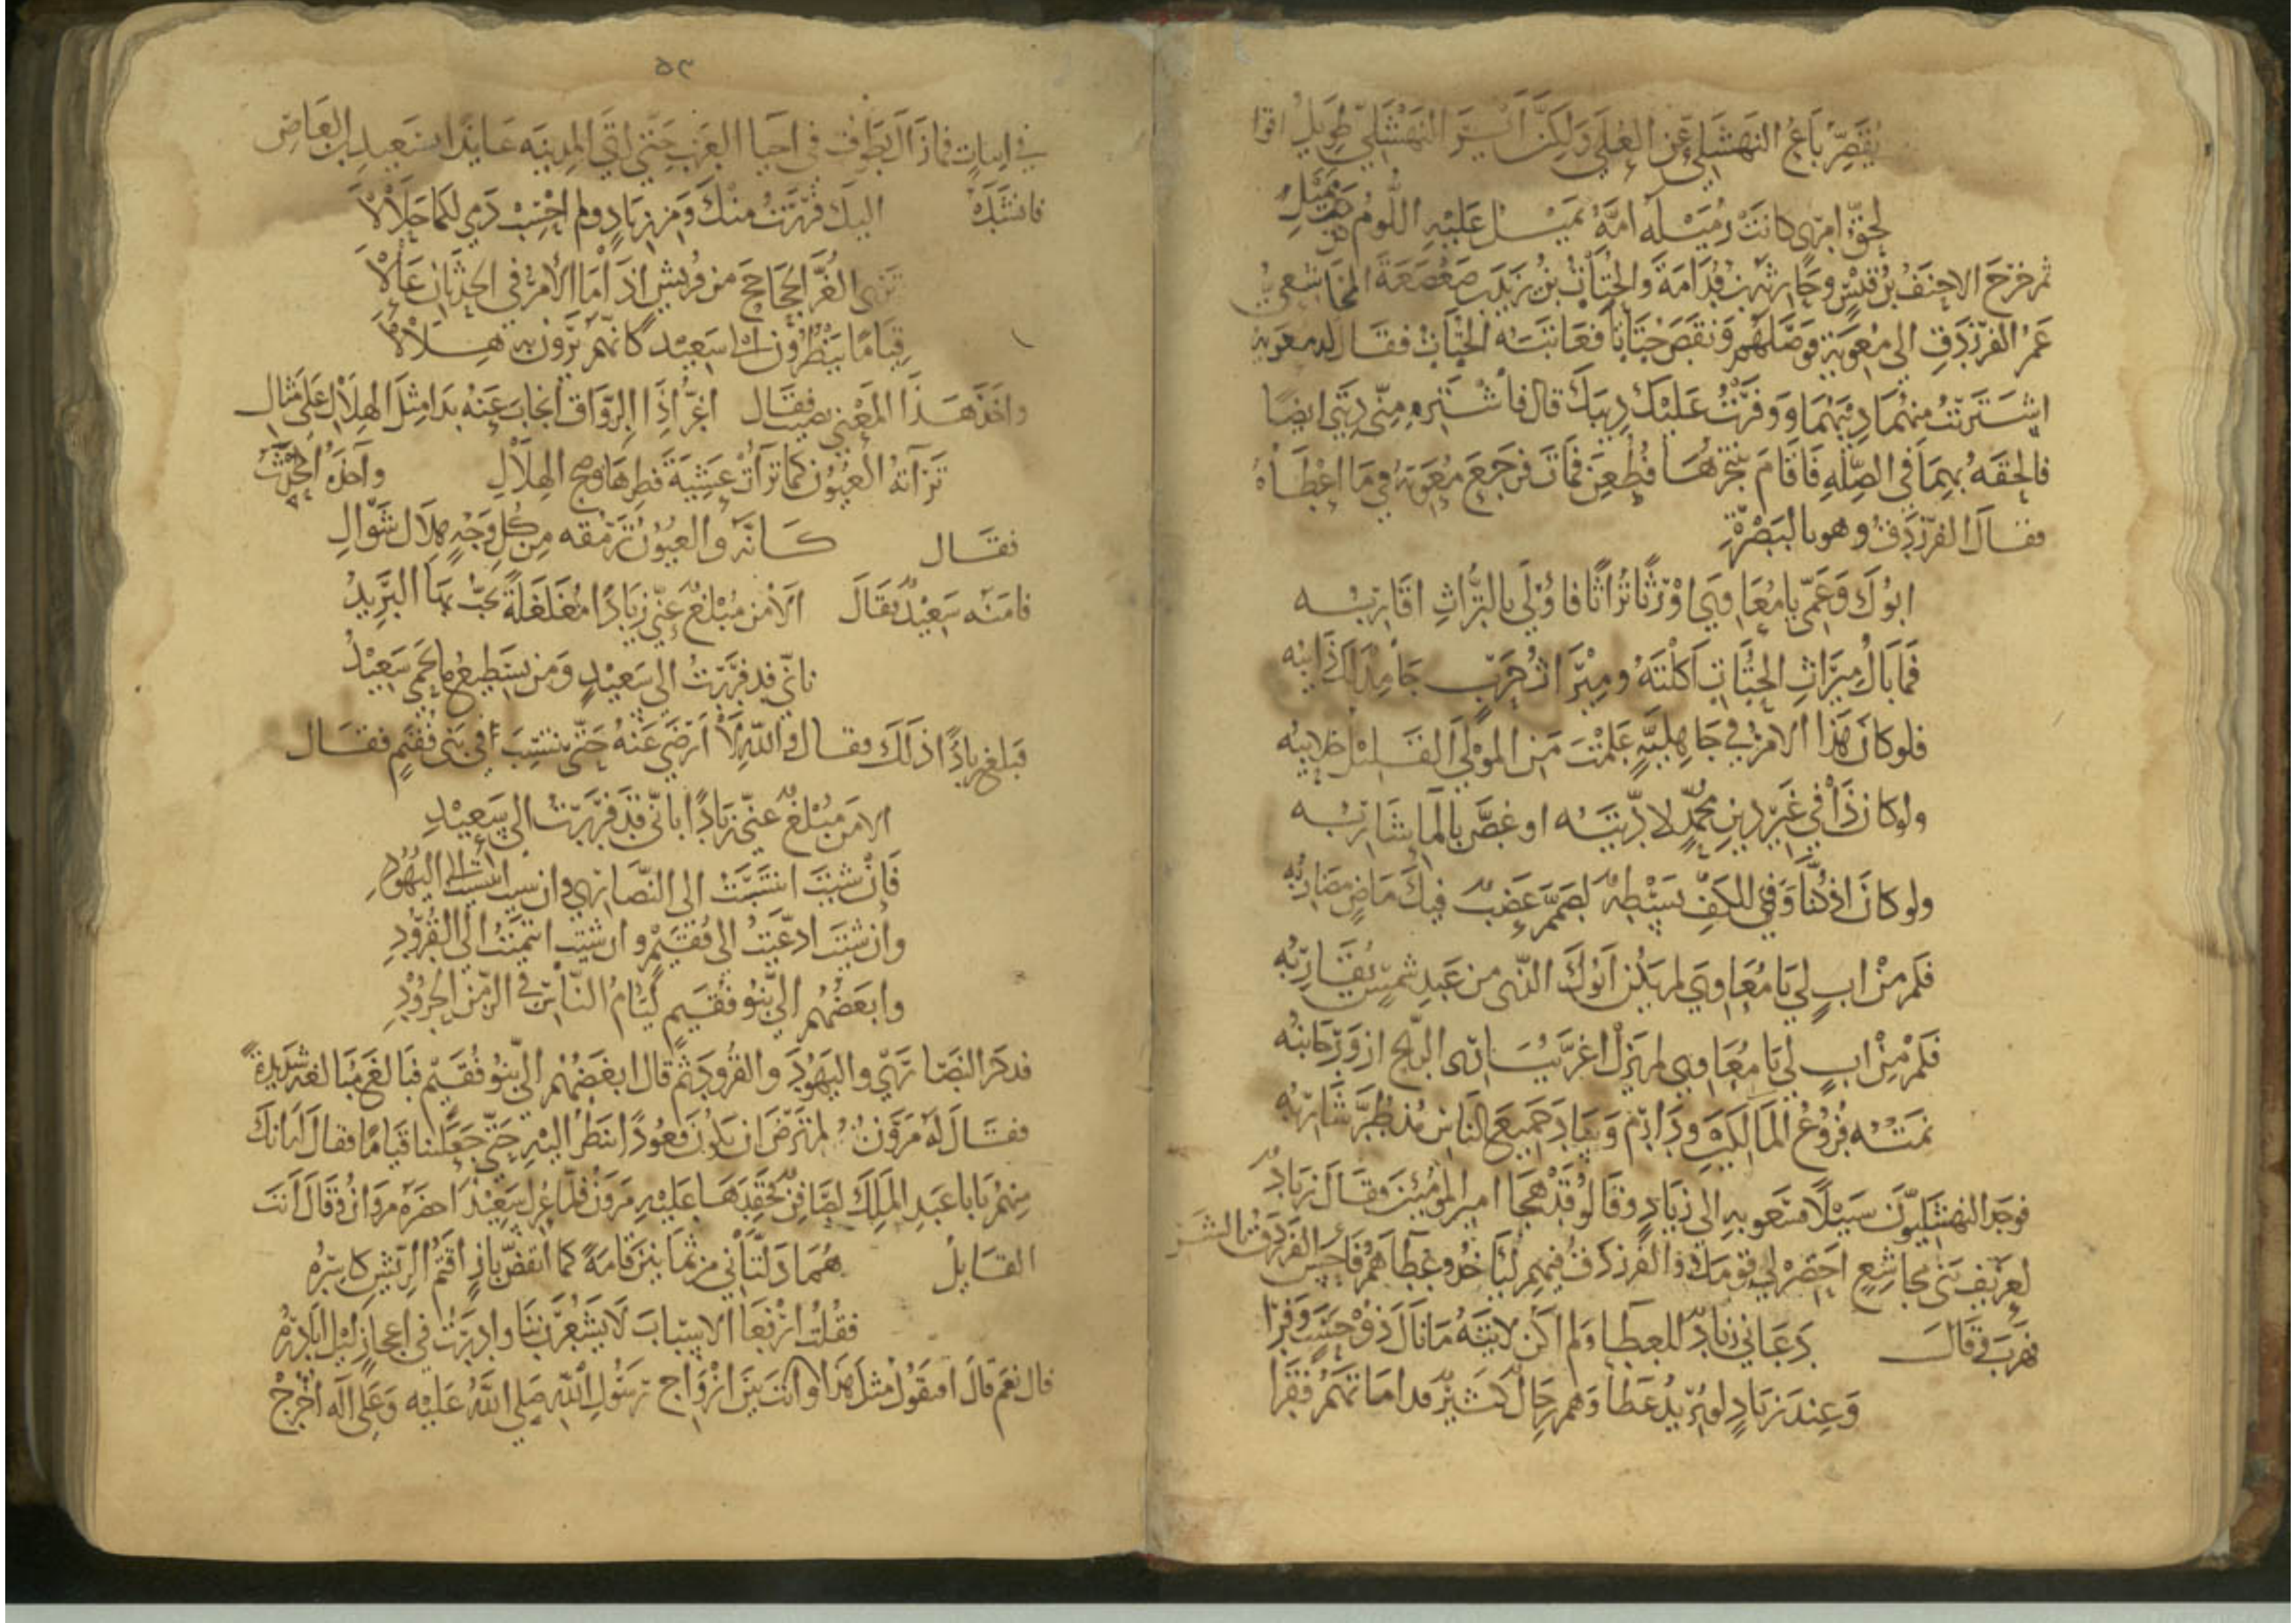 يُقَصِّرُ بَاعُ النهشَلِيّ عَنِ العُلَى وَلكِنَّ النَهْشَلِيِّ طَوِيلُ اقوا
لحقّ امرئ كانَتْ رُمَيْلَه امَّهُ يَمَيْلُ عَلَيْهِ اللُّومُ حَيْثُ يَمِيلُ
ثم خرَجَ الاحنَفُ بْن قَيْسٍ وجَارِيَة بن قُدَامَةَ وَالحُتَاتُ بْنُ يَزِيدَ بن صَعْصَعَةَ المُجَاشعيُّ
عَمّ الفرزدَقِ الى مُعَويَة فوَصَّلَهم وَنقصَ حُتَاتًا فعَاتبَتَه الحُتَاتُ فقَال له معويَة
اشتَرَيْتُ منهُمَا دِينَهُمَا وَوفرْتُ عَلَيْكَ دِينَكَ قال فاشْتَرهِ مِنّي دِيني ايضًا
فالحقَهُ بهِمَا في الصِّلهِ فَاقَامَ يتنجزُهَا فَطُعِنَ فمَات فرَجَعَ مُعَويَةُ في مَا اعْطَاهُ
فقال الفرَزدَقُ وهو بالبَصْرَةِ
ابُوكَ وَعَمّي يا مُعَاوِيَ اوْرَثَا تُراثًا فاوْلَى بالتُّرَاثِ اقَارِبُه
فَمَا بَالُ مِيرَاثِ الحُتَاتِ اكَلْتَهُ ومِيْرَاثُ حَرْبٍ جَامِدٌ لَكَ ذَايِبُه
فلو كانَ هَذا الامْرُ في جَاهِليّةٍ عَلِمْتَ مَنِ المَوْلَى القَلِيْلُ حَلايبُه
ولو كانَ ذَا في غَيْرِ دِينِ مُحَمَّدٍ لادّيتَه او غَصَّ بالمَا شَارِبُه
ولو كانَ اذ كُنّا وَفي للكَفِّ بَسْطةٌ لصَمَّمَ عَضْبٌ فيكَ مَاضٍ مضَارِبُه
فكم مِنْ ابٍ لي يَا مُعَاوِيَ لم يَكُن ابُوكَ الذي من عَبدِ شمسٍ يُقَارِبُه
فكم مِنْ ابٍ لي يَا مُعَاوِيَ لم يَزَلْ اغرَّ يُبَاري الريحَ ازوَرَّ جَانبُه
نمَتْه فُرُوعُ المَالِكَيْنِ ودَارِمٌ وَسَادَ جَمِيعَ النَاسِ مُذ طُرَّ شَارِبُه
فوجدَ النهشَلِيّونَ سَبِيْلًا فسَعَوا بهِ الى زيَادٍ وقَالُوا قَدْ هجَا امير المومنين فقَالَ زيَادٌ
لعرِيف بَني مجاشِعٍ احضره لي قومَكَ والفرزدَقُ فيهم لياخذُوا عَطَاهُم فاحسّ الفَرزدَقُ بالشر
فهرَبَ وقَالَ دَعَاني زيَادٌ للعَطَا ولم اكُن لاتيَهُ مَا نَالَ ذُوْ حَسَبٍ وَفرَا
وَعِندَ زِيَادٍ لو يُرِيدُ عَطَا وَهم رِجَالٌ كَثِيْرٌ قد امَاتَهُمُ فَقْرَا
٥٣
في ابياتٍ فمَا زَالَ يَطُوفُ في احيَا العَرَبِ حَتّى اتَى المدِينَه عَايذًا بسَعِيدِ بن العَاصِ
فانشدَهُ اليكَ فرَرْتُ منكَ وَمِن زيَادٍ ولم احْسِبْ دَمِي لكمَا حَلَالَا
تَرَى الغُرَّ الجحَاجِحَ من قُريشٍ اذَا مَا الامْرُ في الحدَثَانِ عَالَا
قِيَامًا يَنظُرُونَ الى سَعِيْد كانّهم يَرَونَ بهِ هِلَالَا
واخذ هَذَا المَعْنى نصَيبٌ فقَال اغَرُّ اذَا الرِّوَاقُ انجَابَ عَنْهُ بَدَا مِثْلَ الهِلَالِ عَلَى مِثَالِ
تَرَآهُ العُيُونُ كمَا تَرَآتْ عَشِيَةَ فِطْرِهَا وضحَ الهِلَالِ واَخذهُ المحْدَثُ
فقَال كَانّه وَالعُيُونُ تَرمُقه مِن كُلِّ وَجْهٍ هِلَال شَوَّالِ
فامنَه سَعِيْدٌ فقَالَ الا مَن مُبْلغٌ عَنّي زيَادًا مُغَلغَلةً يخُبّ بهَا البَرِيدُ
باني قد فرَرْتُ الى سَعِيْدٍ وَمَن يسَطِيعُ مَا يَحْمِي سَعِيْدُ
فَبلَغ زيَادًا ذلَكَ فقال وَاللهِ لا ارْضَى عَنْهُ حَتّى ينتسِبَ في بَني فُقَيم فقَال
الا مَن مُبْلغٌ عَنّي زيَادًا باني قَد فرَرْتُ الى سَعِيْدِ
فَانْ شيتَ انتَسَبْتُ الى النّصَارَى وان شيت انتسبت الى اليَهُودِ
وان شيْتَ ادّعَيْتُ الى فُقَيْمٍ وان شيت انتمَيْتُ الى القُرُودِ
وابغَضُهُم الىّ بَنُو فُقَيْمٍ لِيَامُ النّاسِ في الزمَنِ الجرُوْدِ
فذكرَ النّصَارَى وَاليَهُودَ وَالقُرُودَ ثم قال ابغَضُهُم الىّ بَنُو فُقَيْم فبَالغَ مُبَالغَة شَدِيدةً
فقَال لَهُ مَروَنُ لم تَرضَ ان نكُونَ قُعُودًا ننظرُ اليْهِ حَتّى جَعَلتنَا قيَامًا فقال له انكَ
مِنهُم يَا با عَبدِ المَلِكَ لصَافِنٌ فحَقَدَهَا عَلَيْهِ مَروَنُ فلمّا عُزِلَ سَعِيْدٌ احضَرَهُ مروَانُ وَقَالَ انتَ
القَايلُ هُمَا دَلّتَاني من ثمَانينَ قَامَةً كمَا انقَضَّ بَازٍ اقتَمُ الرّيْشِ كَاسِرُه
فقُلْتُ ارْفَعَا الاسبَابَ لا يَشْعُرُ بنَا وادبَرْتُ في اعجَازِ لَيْلٍ ابَادِرُه
قال نَعَم قَالَ افتقُولُ مثلَ هَذَا وانتَ بَيْنَ ازْوَاجِ رَسُولِ اللهِ صَلى اللهُ عَلَيْه وَعَلَى آله اخْرُجْ